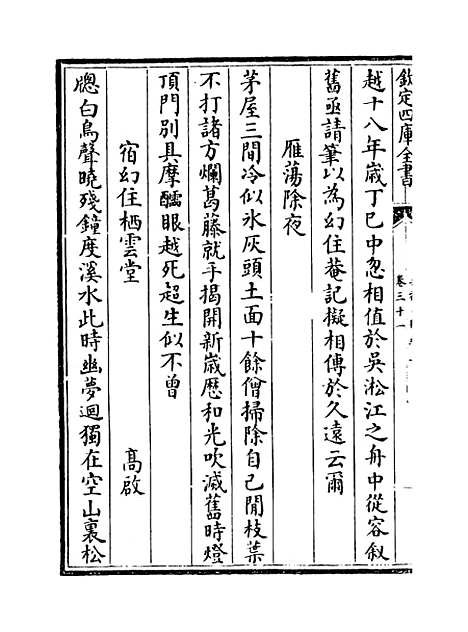 欽定四庫全書
卷三十一
越十八年歲丁巳中忽相值於吳淞江之舟中從容叙
舊亟請筆以為幻住菴記擬相傳於久遠云爾
雁蕩除夜
茅屋三間冷似氷灰頭土面十餘僧掃除自己閒枝葉
不打諸方爛葛藤就手揭開新歲歴和光吹滅舊時燈
頂門別具摩醯眼越死超生似不曽
宿幻住栖雲堂　高啟
牕白鳥聲曉殘鐘度溪水此時幽夢迴獨在空山裏松